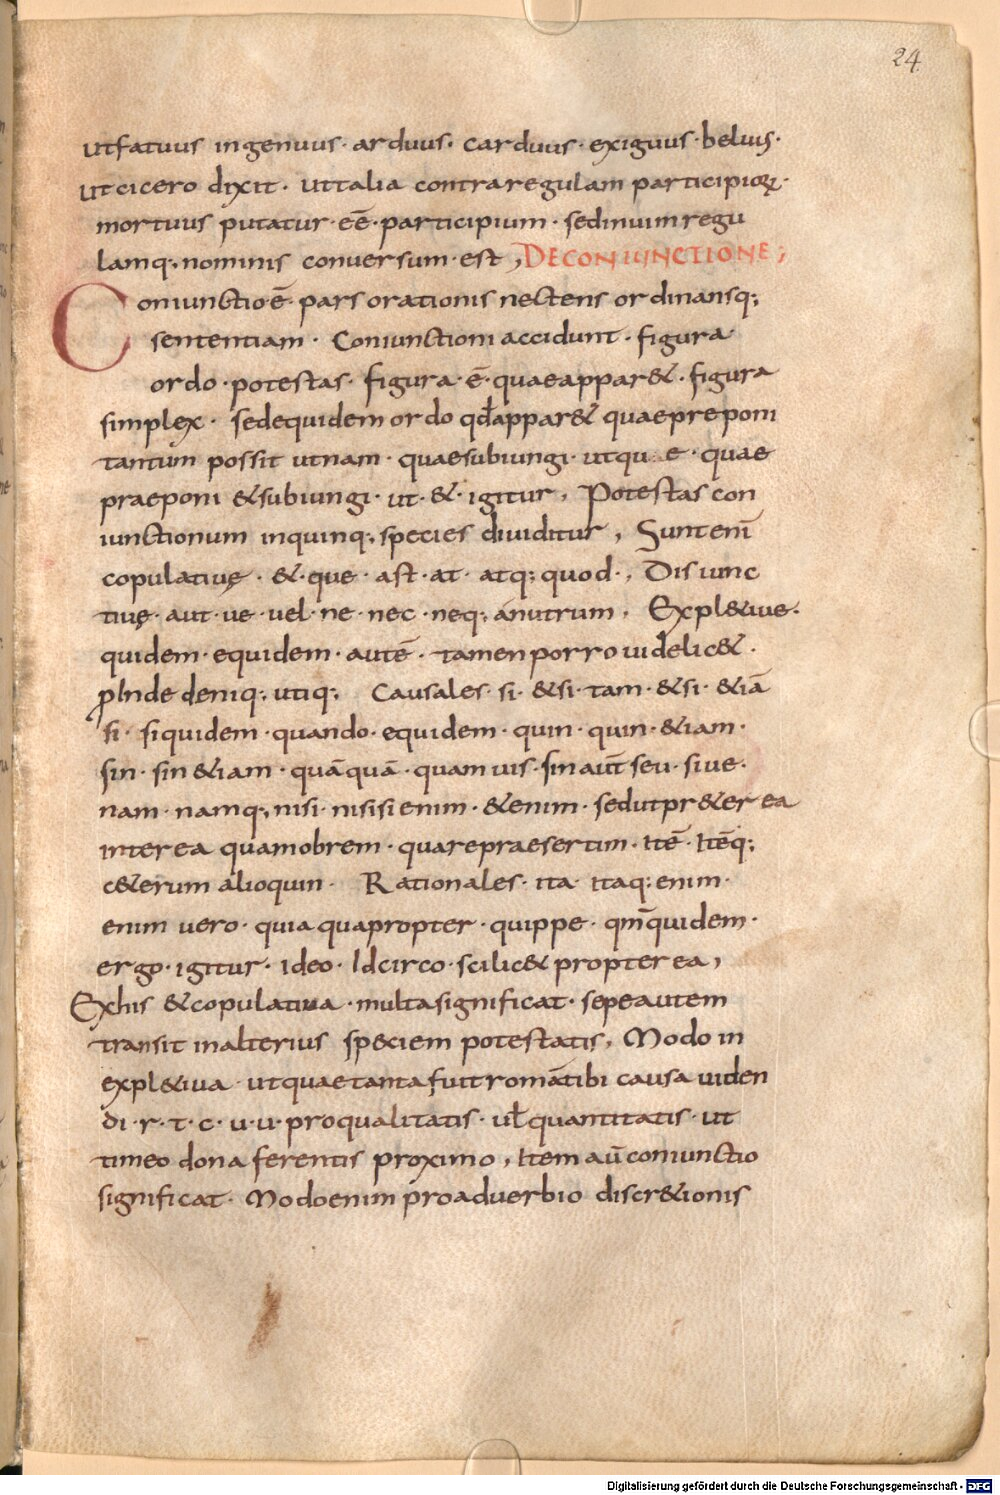 24
utfatuus ingenuus· arduus· carduus· exiguus· beluus·
ut cicero dixit· uttalia contraregulam participioꝝ·
mortuus putatur· eē· participium· sedinuimregu
lamq; nominis conuersum· est, DECONIUNCTIONE;
Coniunctio ē· pars orationis nectens ordinansq;
sententiam· Coniunctioni accidunt· figura
ordo· potestas· figura· ē· quaeappar&· figura
simplex· sedequidem ordo qđappar& quaepreponi
tantum possit utnam· quaesubiungi· utqu e· quae
praeponi &subiungi· ut· &· igitur, Potestas con
iunctionum inquinq; species diuiditur, Sunt enī
copulatiuę· &· que· ast· at· atq; quod·, Disiunc
tiuę· aut· ue· uel· ne· nec· neq; anutrum, Expl&iue·
quidem· equidem· autē· tamen porro uidelic&·
ꝓInde deniq; utiq; Causales· si· &si· tam· &si· &iā
si· siquidem· quando· equidem· quin· quin· &iam·
sin· sin&iam· quāquā· quamuis· sin aut̄ seu· siue·
nam· namq; nisi· nisisi enim· &enim· sedutpr&erea
interea quamobrem· quarepraesertim· Itē· Itēq;
c&erum alioquin· Rationales· ita· itaq; enim·
enim uero· quia quapropter· quippe· qm̄quidem·
ergo· igitur· ideo· Idcirco· scilic& propterea,
Exhis &copulatiua· multasignificat· sepeautem
transit inalterius speciem potestatis, Modo in
expl&iua· utquaetantafuitromātibi causa uiden
di· r· t· c· u· u· proqualitatis· uł quantitatis· ut
timeo dona ferentis proximo, Item aū coniunctio
significat· Modoenim proaduerbio discr&ionis
Digitalisierung gefördert durch die Deutsche Forschungsgemeinschaft - DFG